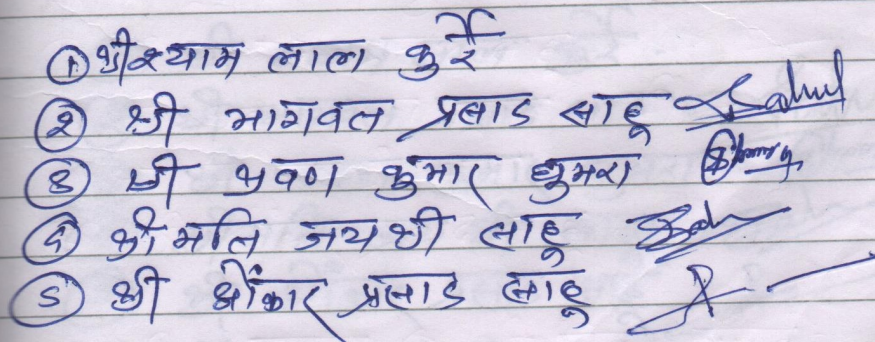 ① श्री श्याम लाल कुर्रे
② श्री भागवत प्रसाद साहू Sahu
③ श्री श्रवण कुमार धुमरा
④ श्रीमति जयश्री साहू
⑤ श्री ओंकार प्रसाद साहू